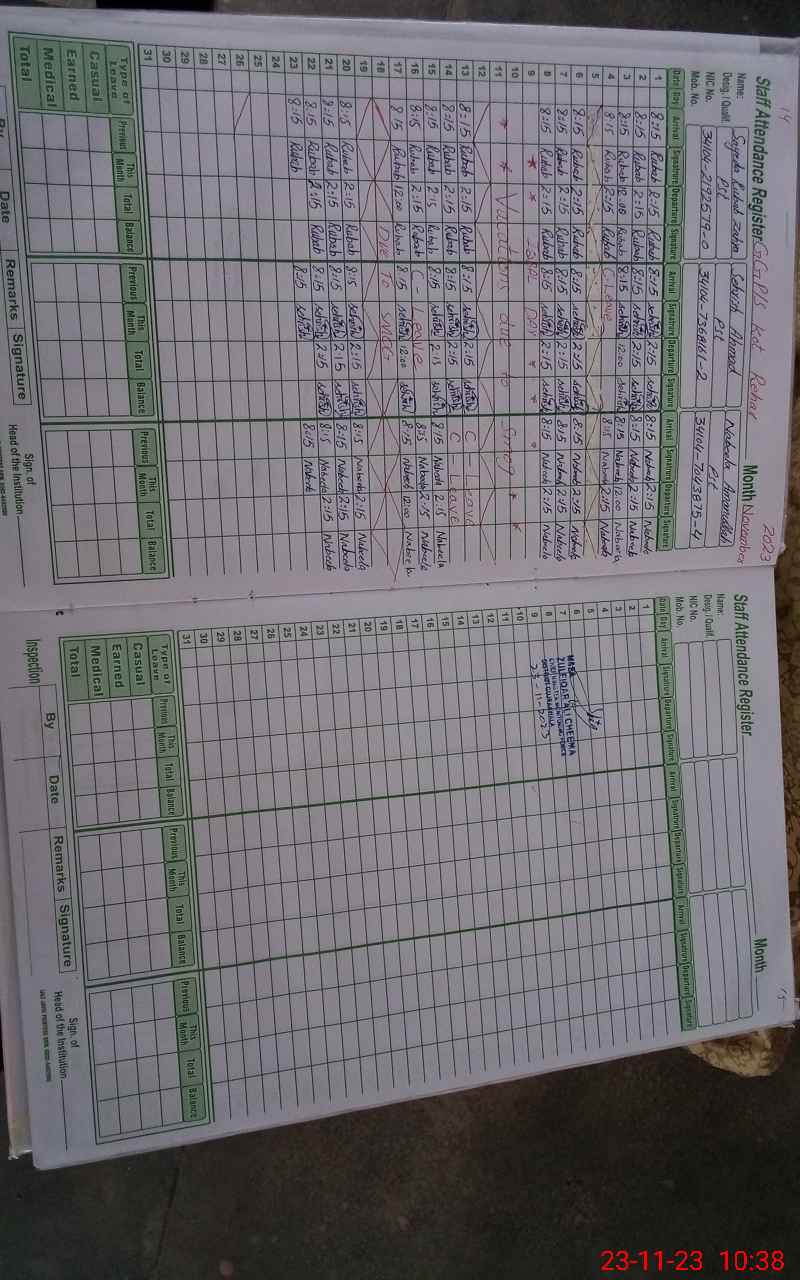 14
Staff Attendance Register GGPS Kot Rehar Month November 2023
Name: Sayeda Rubab Zahra Sehrish Ahmed Nabeela Amanullah
Desig. / Qualif. PST PST PST
NIC No. 34104-2192579-0 34104-7368161-2 34104-7043875-4
Mob. No.
Date Day Arrival Signature Departure Signature Arrival Signature Departure Signature Arrival Signature Departure Signature
1 8:15 Rubab 2:15 Rubab 8:15 sehrish 2:15 sehrish 8:15 Nabeela 2:15 Nabeela
2 8:15 Rubab 2:15 Rubab 8:15 sehrish 2:15 sehrish 8:15 Nabeela 2:15 Nabeela
3 8:15 Rubab 12:00 Rubab 8:15 sehrish 12:00 sehrish 8:15 Nabeela 12:00 Nabeela
4 8:15 Rubab 2:15 Rubab C-Leave 8:15 Nabeela 2:15 Nabeela
5
6 8:15 Rubab 2:15 Rubab 8:15 sehrish 2:15 sehrish 8:15 Nabeela 2:15 Nabeela
7 8:15 Rubab 2:15 Rubab 8:15 sehrish 2:15 sehrish 8:15 Nabeela 2:15 Nabeela
8 8:15 Rubab 2:15 Rubab 8:15 sehrish 2:15 sehrish 8:15 Nabeela 2:15 Nabeela
9 * * IQBAL DAY * * *
10
11 * * Vacations due to Smog * *
12
13 8:15 Rubab 2:15 Rubab 8:15 sehrish 2:15 sehrish C - Leave
14 8:15 Rubab 2:15 Rubab 8:15 sehrish 2:15 sehrish C Leave
15 8:15 Rubab 2:15 Rubab 8:15 sehrish 2:15 sehrish 8:15 Nabeela 2:15 Nabeela
16 8:15 Rubab 2:15 Rubab C - Leave 8:15 Nabeela 2:15 Nabeela
17 8:15 Rubab 12:00 Rubab 8:15 sehrish 12:00 sehrish 8:15 Nabeela 12:00 Nabeela
18 Due To smog
19
20 8:15 Rubab 2:15 Rubab 8:15 sehrish 2:15 sehrish 8:15 Nabeela 2:15 Nabeela
21 8:15 Rubab 2:15 Rubab 8:15 sehrish 2:15 sehrish 8:15 Nabeela 2:15 Nabeela
22 8:15 Rubab 2:15 Rubab 8:15 sehrish 2:15 sehrish 8:15 Nabeela 2:15 Nabeela
23 8:15 Rubab 8:15 sehrish 8:15 Nabeela
24
25
26
27
28
29
30
31
Type of Leave Previous This Month Total Balance Previous This Month Total Balance Previous This Month Total Balance
Casual
Earned
Medical
Total
By Date Remarks Signature
Sign. of
Head of the Institution
15
Staff Attendance Register Month
Name:
Desig. / Qualif.
NIC No.
Mob. No.
Date Day Arrival Signature Departure Signature Arrival Signature Departure Signature Arrival Signature Departure Signature
1
2
3
4
5
6
7
8
9
ZULFIQAR ALI CHEEMA
23-11-2023
10
11
12
13
14
15
16
17
18
19
20
21
22
23
24
25
26
27
28
29
30
31
Type of Leave Previous This Month Total Balance Previous This Month Total Balance Previous This Month Total Balance
Casual
Earned
Medical
Total
Inspection By Date Remarks Signature
Sign. of
Head of the Institution
23-11-23 10:38